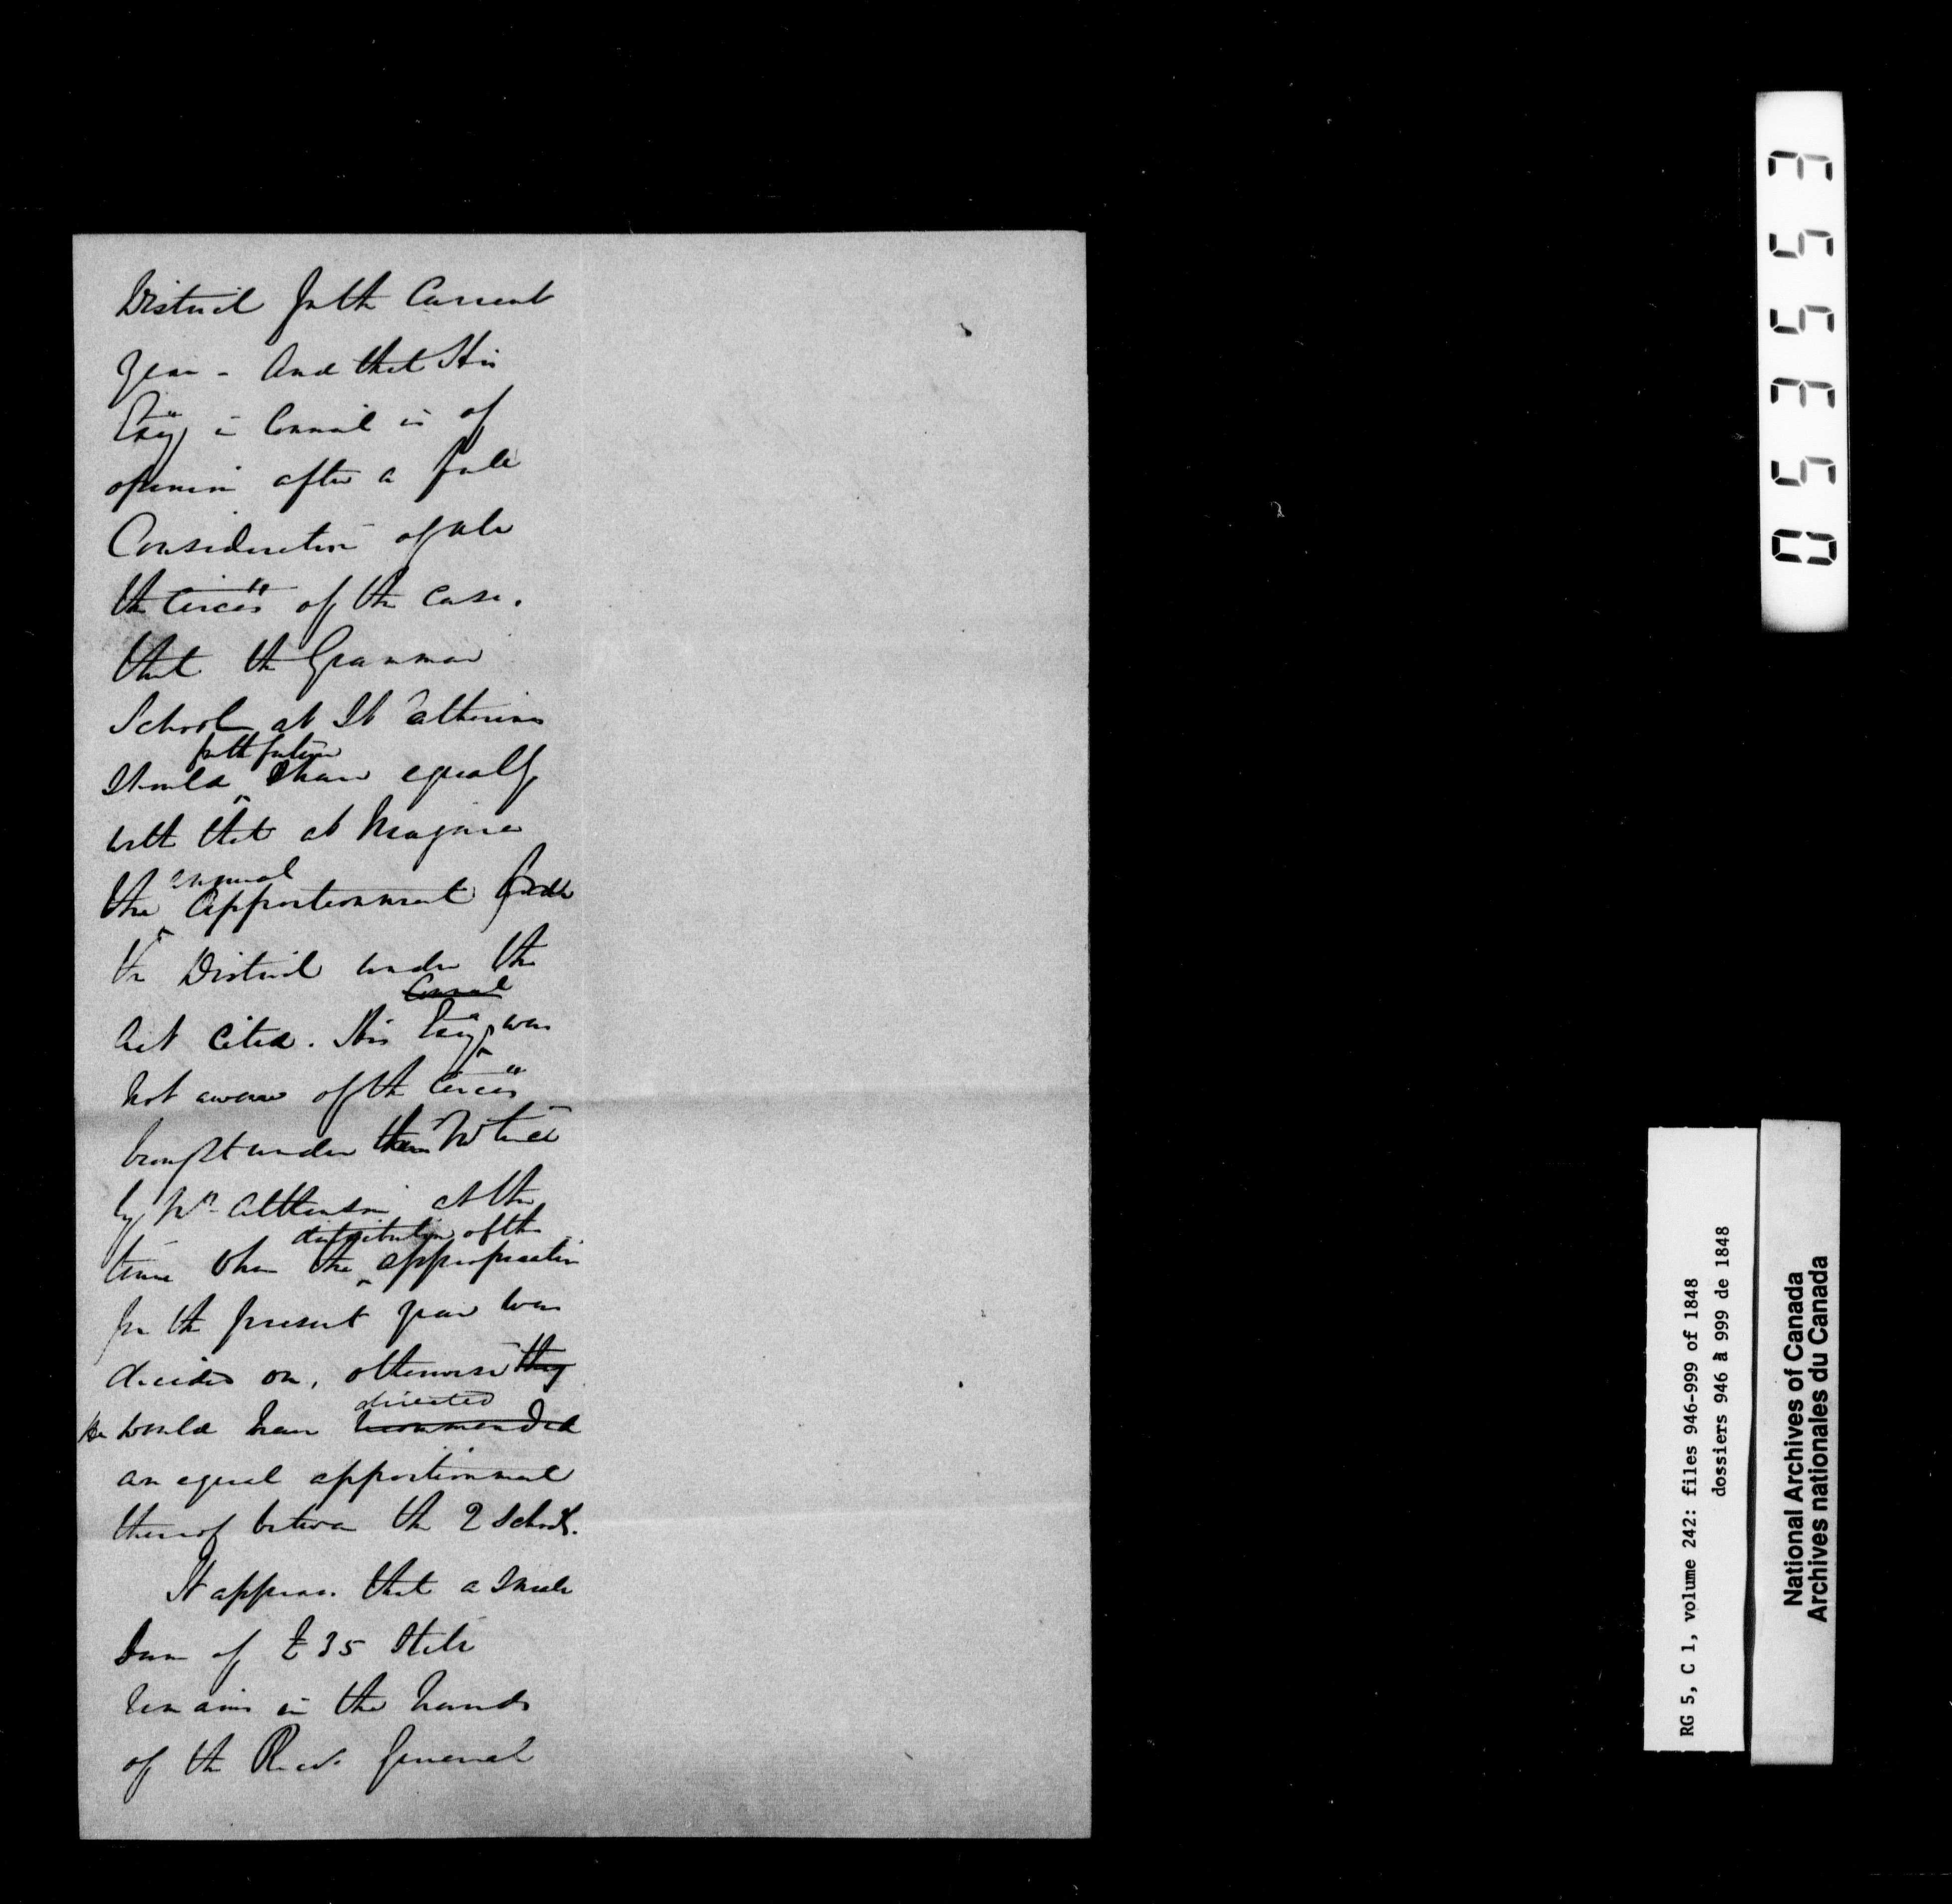 District for the Current
year - And that His
Excy in Council is of
opinion after a full
Consideration of all
the Circes of the case.
that the Grammar
School at St Catherines
for the future
Should share equally
with that at Niagara
annual
the Apportionment for
the District under the
Council
Act cited. His Excy was
not aware of the Circes
brought under their Notice
by Mr Atkinson at the
distribution of the
time when the appropriation
for the present year was
decided on, otherwise they
directed
He would have recommended
an equal apportionment
thereof between the 2 Schools.
It appears that a small
Sum of £35 Still
remains in the hands
of the Recr General
053553
RG 5, C 1, volume 242: files 946-999 of 1848
dossiers 946 à 999 de 1848
National Archives of Canada
Archives nationales du Canada